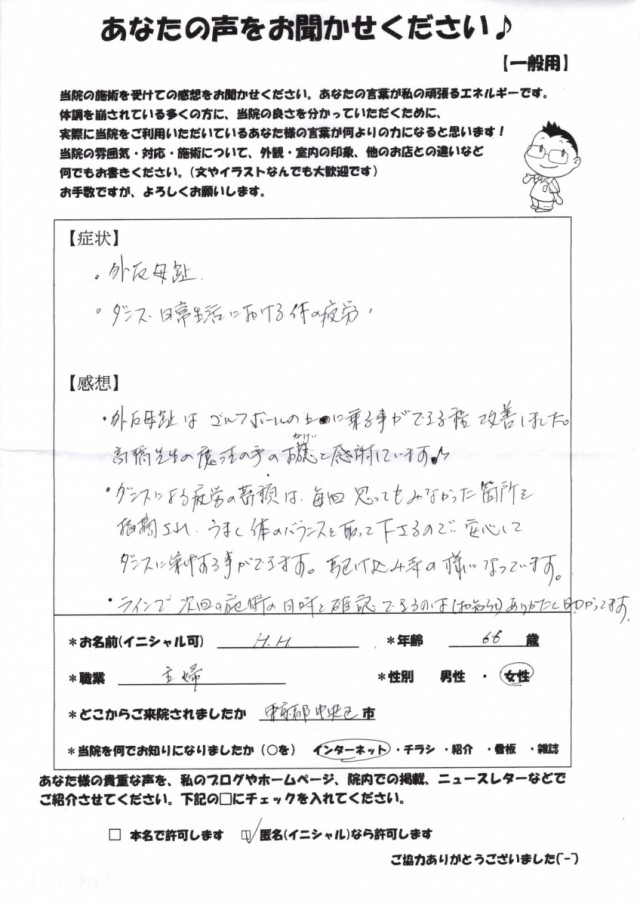 あなたの声をお聞かせください♪
【一般用】
当院の施術を受けての感想をお聞かせください。あなたの言葉が私の頑張るエネルギーです。
体調を崩されている多くの方に、当院の良さを分かっていただくために、
実際に当院をご利用いただいているあなた様の言葉が何よりの力になると思います！
当院の雰囲気・対応・施術について、外観・室内の印象、他のお店との違いなど
何でもお書きください。（文やイラストなんでも大歓迎です）
お手数ですが、よろしくお願いします。
【症状】
・外反母趾
・ダンス・日常生活における体の疲労
【感想】
・外反母趾はゴルフボールの上に乗る事ができる程改善しました。
高橋先生の魔法の手のお蔭と感謝しています♪
・ダンスによる疲労の蓄積は、毎回思ってもみなかった箇所を
指摘され、うまく体のバランスを取って下さるので安心して
ダンスに集中する事ができます。駆け込み寺の様になっています。
・ラインで次回の施術の日時を確認できるのは(お知らせ)ありがたく助かってます。
＊お名前(イニシャル可) H.H ＊年齢 66 歳
＊職業 主婦 ＊性別 男性 ・ 女性
＊どこからご来院されましたか 東京都中央区市
＊当院を何でお知りになりましたか（○を） インターネット ・チラシ ・紹介 ・看板 ・雑誌
あなた様の貴重な声を、私のブログやホームページ、院内での掲載、ニュースレターなどで
ご紹介させてください。下記の□にチェックを入れてください。
□ 本名で許可します ☑ 匿名(イニシャル)なら許可します
ご協力ありがとうございました(^-^)